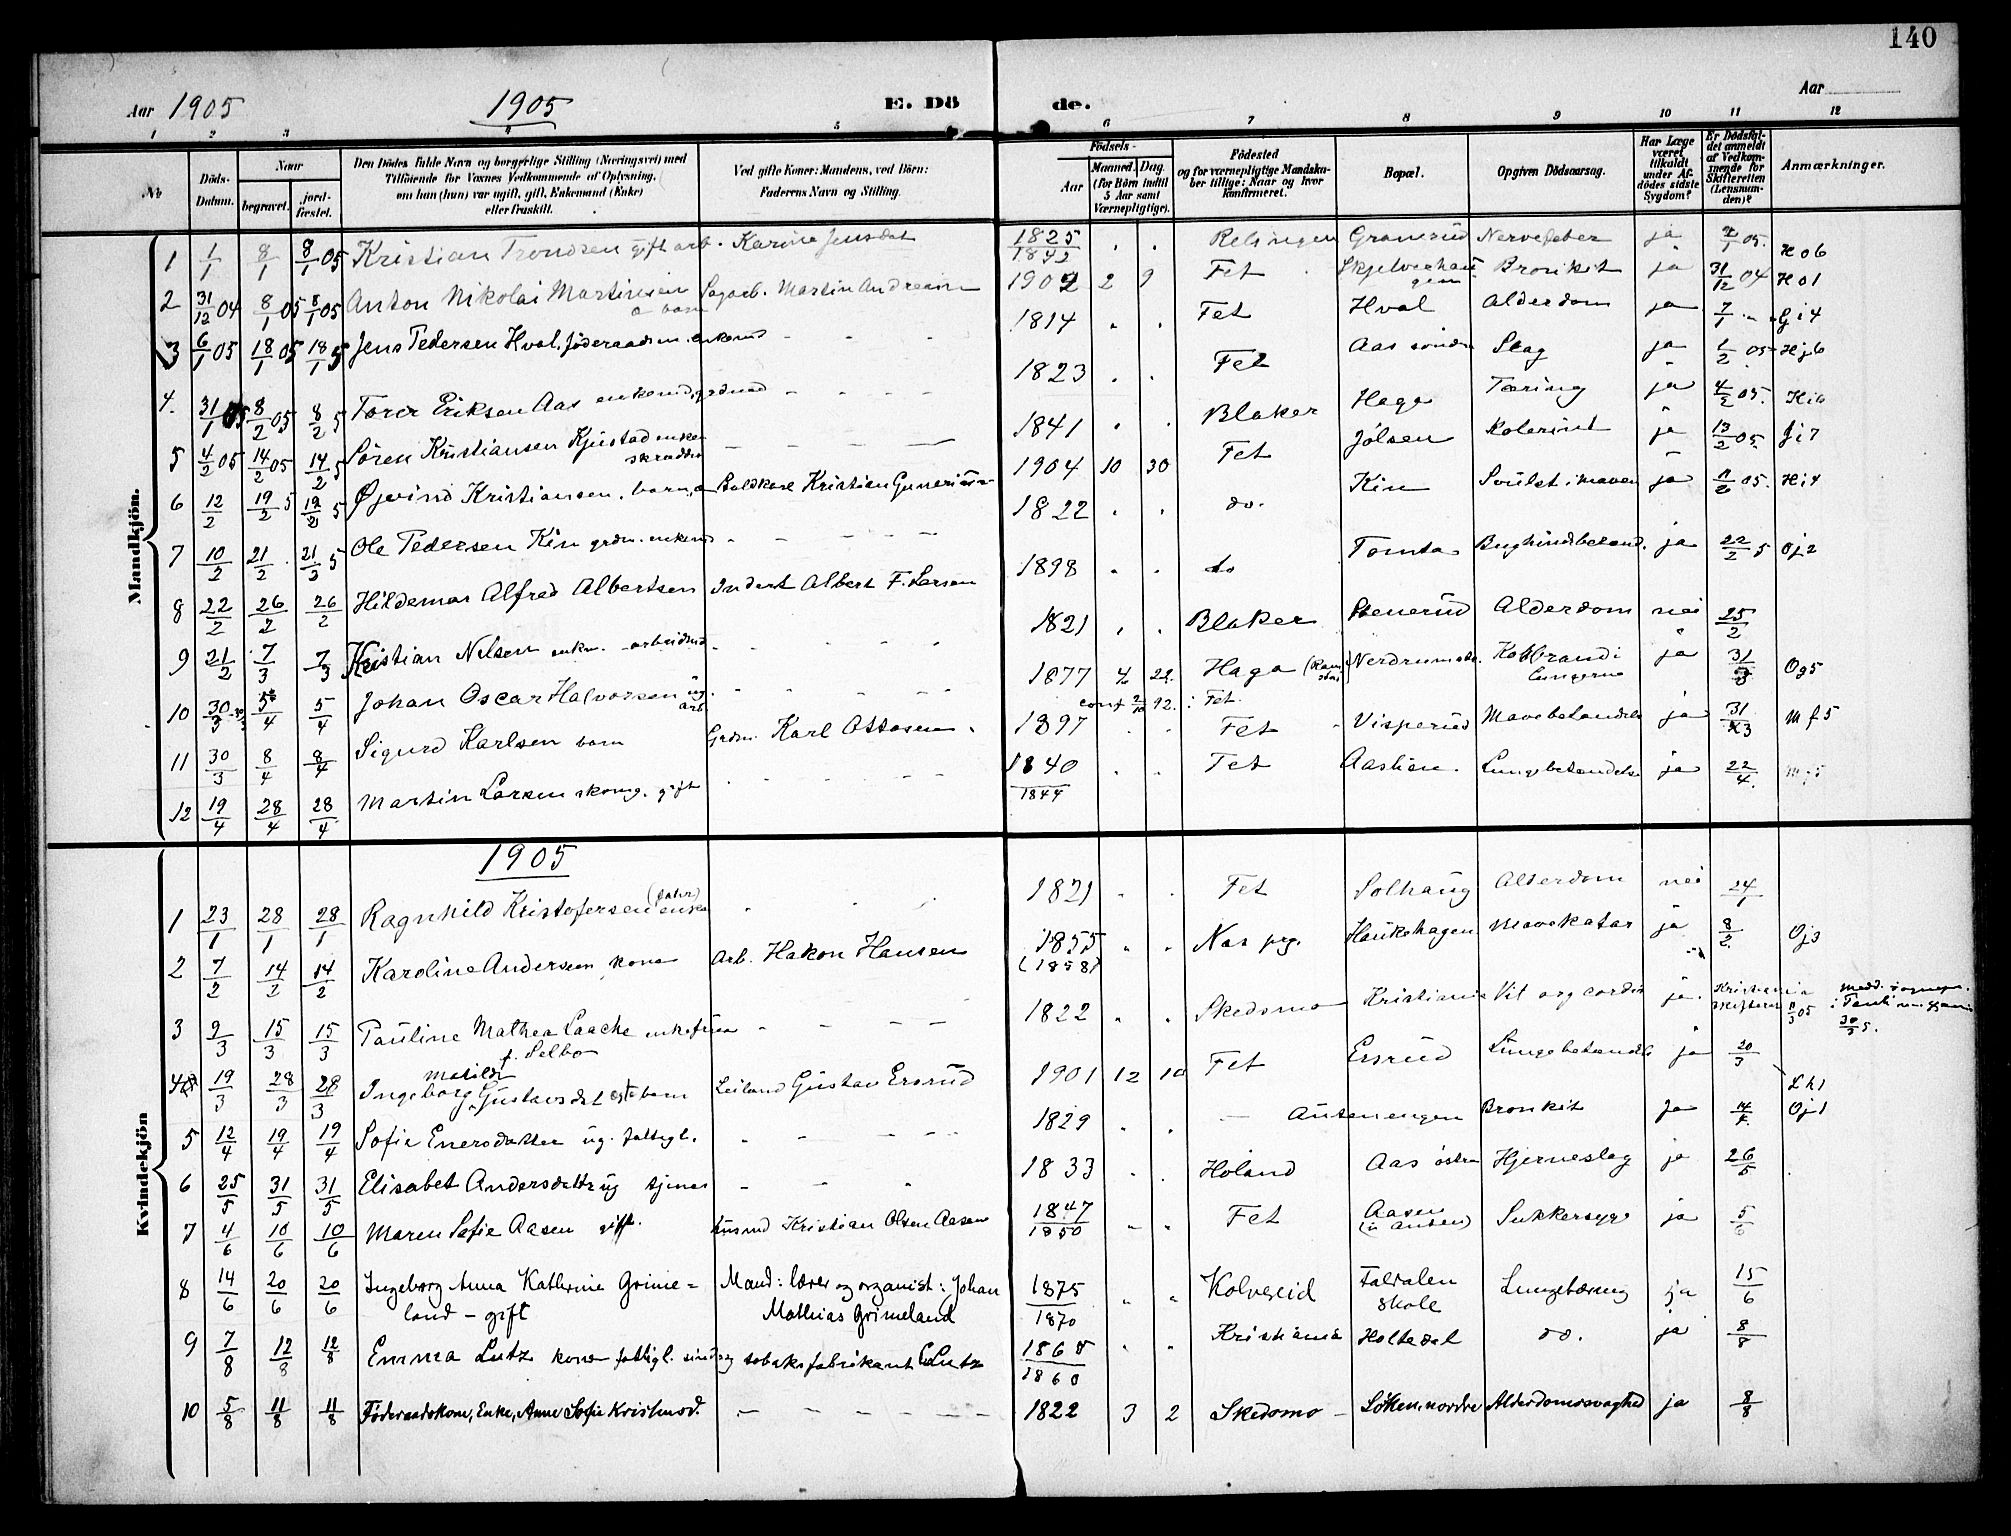 140
Aar 1905 1905 E. Dö de. Aar
1 2 3 4 5 6 7 8 9 10 11 12
No. Döds-Datum. Naar begravet. jord-fæstet. Den Dödes fulde Navn og borgerlige Stilling (Næringsvei) med Tilföiende for Voxnes Vedkommende af Oplysning, om han (hun) var ugift, gift, Enkemand (Enke) eller fraskilt. Ved gifte Koner: Mandens, ved Börn: Faderens Navn og Stilling. Födsels- Aar Maaned. Dag. (for Börn indtil 5 Aar samt Værnepligtige). Födested og for værnepligtige Mandskaber tillige: Naar og hvor konfirmeret. Bopæl. Opgiven Dödsaarsag. Har Læge været tilkaldt under Afdödes sidste Sygdom? Er Dödsfaldet anmeldt af Vedkommende for Skifteretten (Lensmanden)? Anmærkninger.
Mandkjön.
1 1/1 8/1 8/1 05 Kristian Trondsen gift arb. Karine Jensdat 1825 1842 Relingen Granerud Nervefeber ja 2/1 05. H06
2 31/12 04 8/1 05 8/1 05 Anton Nikolai Martinsen barn Sagarb. Martin Andreasen 1902 2 9 Fet Bronkit ja 31/12 04 H01
3 6/1 05 18/1 05 18/1 5 Jens Pedersen Hval, föderaadsm. enkemd 1814 Fet Hval Alderdom ja 7/1 Gi4
4. 31/1 05 8/2 05 8/2 5 Torer Eriksen Aas enkemd, grdmd 1823 Fet Aas söndre Slag ja 1/2 05 Hj6
5 4/2 05 14/2 05 14/2 5 Sören Kristiansen Kjustad enkem skrædder 1841 Blaker Haga Tæring ja 4/2 05. Hi6
6 12/2 19/2 5 19/2 5 Øivind Kristiansen, barn, Kristian Gunerius 1904 10 30 Fet Jölsen Kolerine ja 13/2 05. Ji7
7 10/2 21/2 21/2 5 Ole Pedersen Kin grdm. enkemd 1822 do. Kin i maven ja 05. Hi4
8 22/2 26/2 26/2 Hildemar Alfred Albertsen Inderst Albert F. Larsen 1898 do Tomta Bughindebetænd. ja 22/2 5 Oj2
9 21/2 7/3 7/3 Kristian Nelsen enkm. arbeidsmd 1821 Blaker Stenerud Alderdom nei 25/2
10 30/3 5/4 5/4 Johan Oscar Halvorsen ug. arb 1877 4/ 22. Haga Nerdrum Koldbrand i Lungerne ja 31/3 Og5
conf. 2/10 92. : Fet.
11 30/3 8/4 8/4 Sigurd Karlsen barn Grdm. Karl Ottosen 1897 Fet Visperud Mavebetændelse ja 31/3 Mf5
12 19/4 28/4 28/4 Martin Larsen skomg. gift 1840 1844 Fet Aaslien. Lungebetændelse ja 22/4.
1905
Kvindekjön
1 23/1 28/1 28/1 Ragnhild Kristofersen enke 1821 Fet Solhaug Alderdom nei 24/1
2 7/2 14/2 14/2 Karoline Andersen, kone Arb. Hakon Hansen 1855 (1858) Nas prg. Haukshagen Mavekatar ja 8/2. Oj3
3 9/3 15/3 15/3 Pauline Mathea Laache enkefrue f. Selbo 1822 Skedsmo Kristiania Vit. org. cordis ja. Kristiania Skifteret 8/3 05 30/3 5.
4 19/3 28/3 28/3 Ingeborg Matilde Gustavsdat barn Leiland Gustav Ersrud 1901 12 10 Fet Ersrud Lungebetændelse ja 20/3 Lh1
5 12/4 19/4 19/4 Sofie Enersdatter ug. fattigl. 1829 — Autenengen Bronkit Ja 14/4. Oj1
6 25/5 31/5 31/5 Elisabet Andersdatter ug tjener 1833 Höland Aas östre Hjerneslag ja 26/5
7 4/6 10/6 10/6 Maren Sofie Aasen gift. Husmd Kristian Olsen Aasen 1847 1850 Fet Aasen Sukkersyge ja 5/6
8 14/6 20/6 20/6 Ingeborg Anna Kathrine Grime=land — gift Mand: lærer og organist: Johan Mathias Grimeland 1875 1870 Kolvereid Faldalen Skole Lungetæring ja 15/6
9 7/8 12/8 12/8 Emma Lutz kone fattigl. sindssyg tobaksfabrikant Lutz 1868 1860 Kristiania Holtedal do. ja 8/8
10 5/8 11/8 11/8 Föderaadskone, Enke, Anne Sofie Kristensd. 1822 3 2 Skedsmo Löken, nordre Alderdomssvaghed ja 8/8